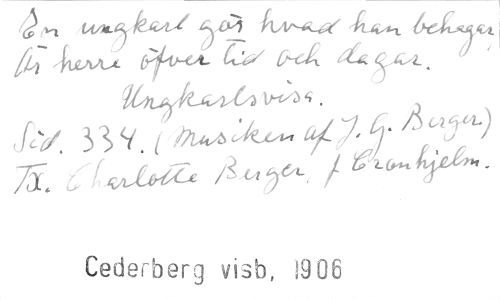 En ungkarl gör hvad han behagar,
Är herre öfver tid och dagar.
Ungkarlsvisa.
Sid. 334. (Musiken af J. G. Berger.)
Tx. Charlotte Berger, f Cronhjelm.
Cederberg visb, 1906